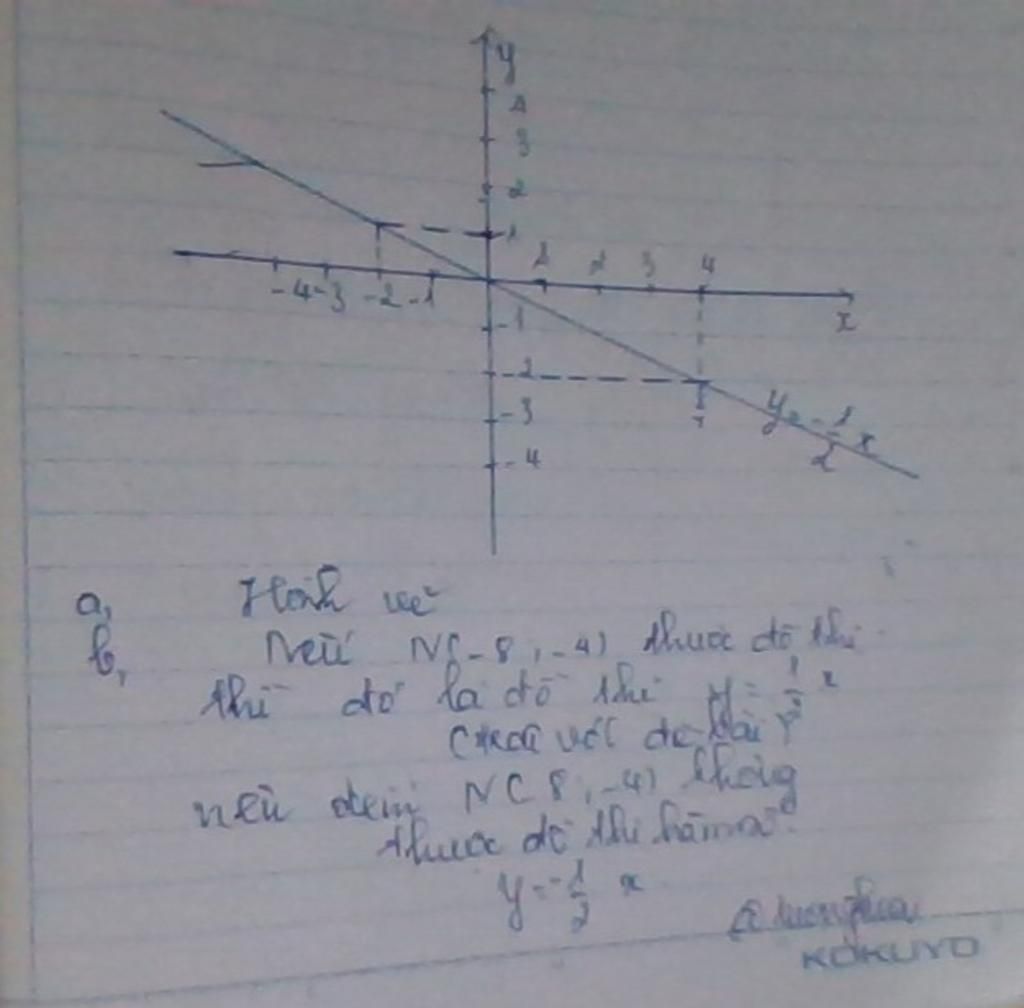 y
4
3
2
1
1 2 3 4
-4 -3 -2 -1
x
-1
-2
-3
-4
y = -1/2 x
a, Hình vẽ
b, Nếu N(-8; -4) thuộc đồ thị
thì đó là đồ thị y = 1/2 x
với đề bài)
nên điểm N(-8; -4) không
thuộc đồ thị hàm số
y = -1/2 x
KOKUYO